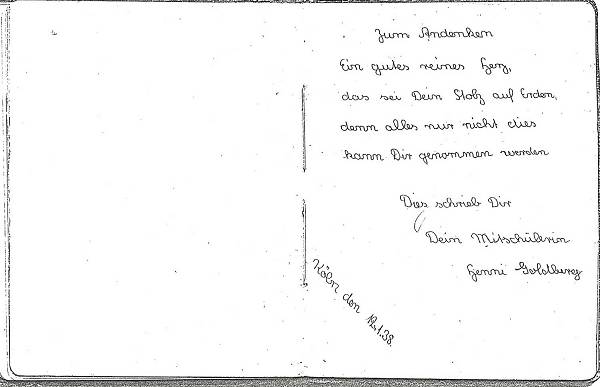 Zum Andenken
Ein gutes reines Herz,
das sei Dein Stolz auf Erden,
denn alles nur nicht dies
kann Dir genommen werden
Dies schrieb Dir
Dein Mitschülerin
Henni Goldberg
Köln den 12.1.38.